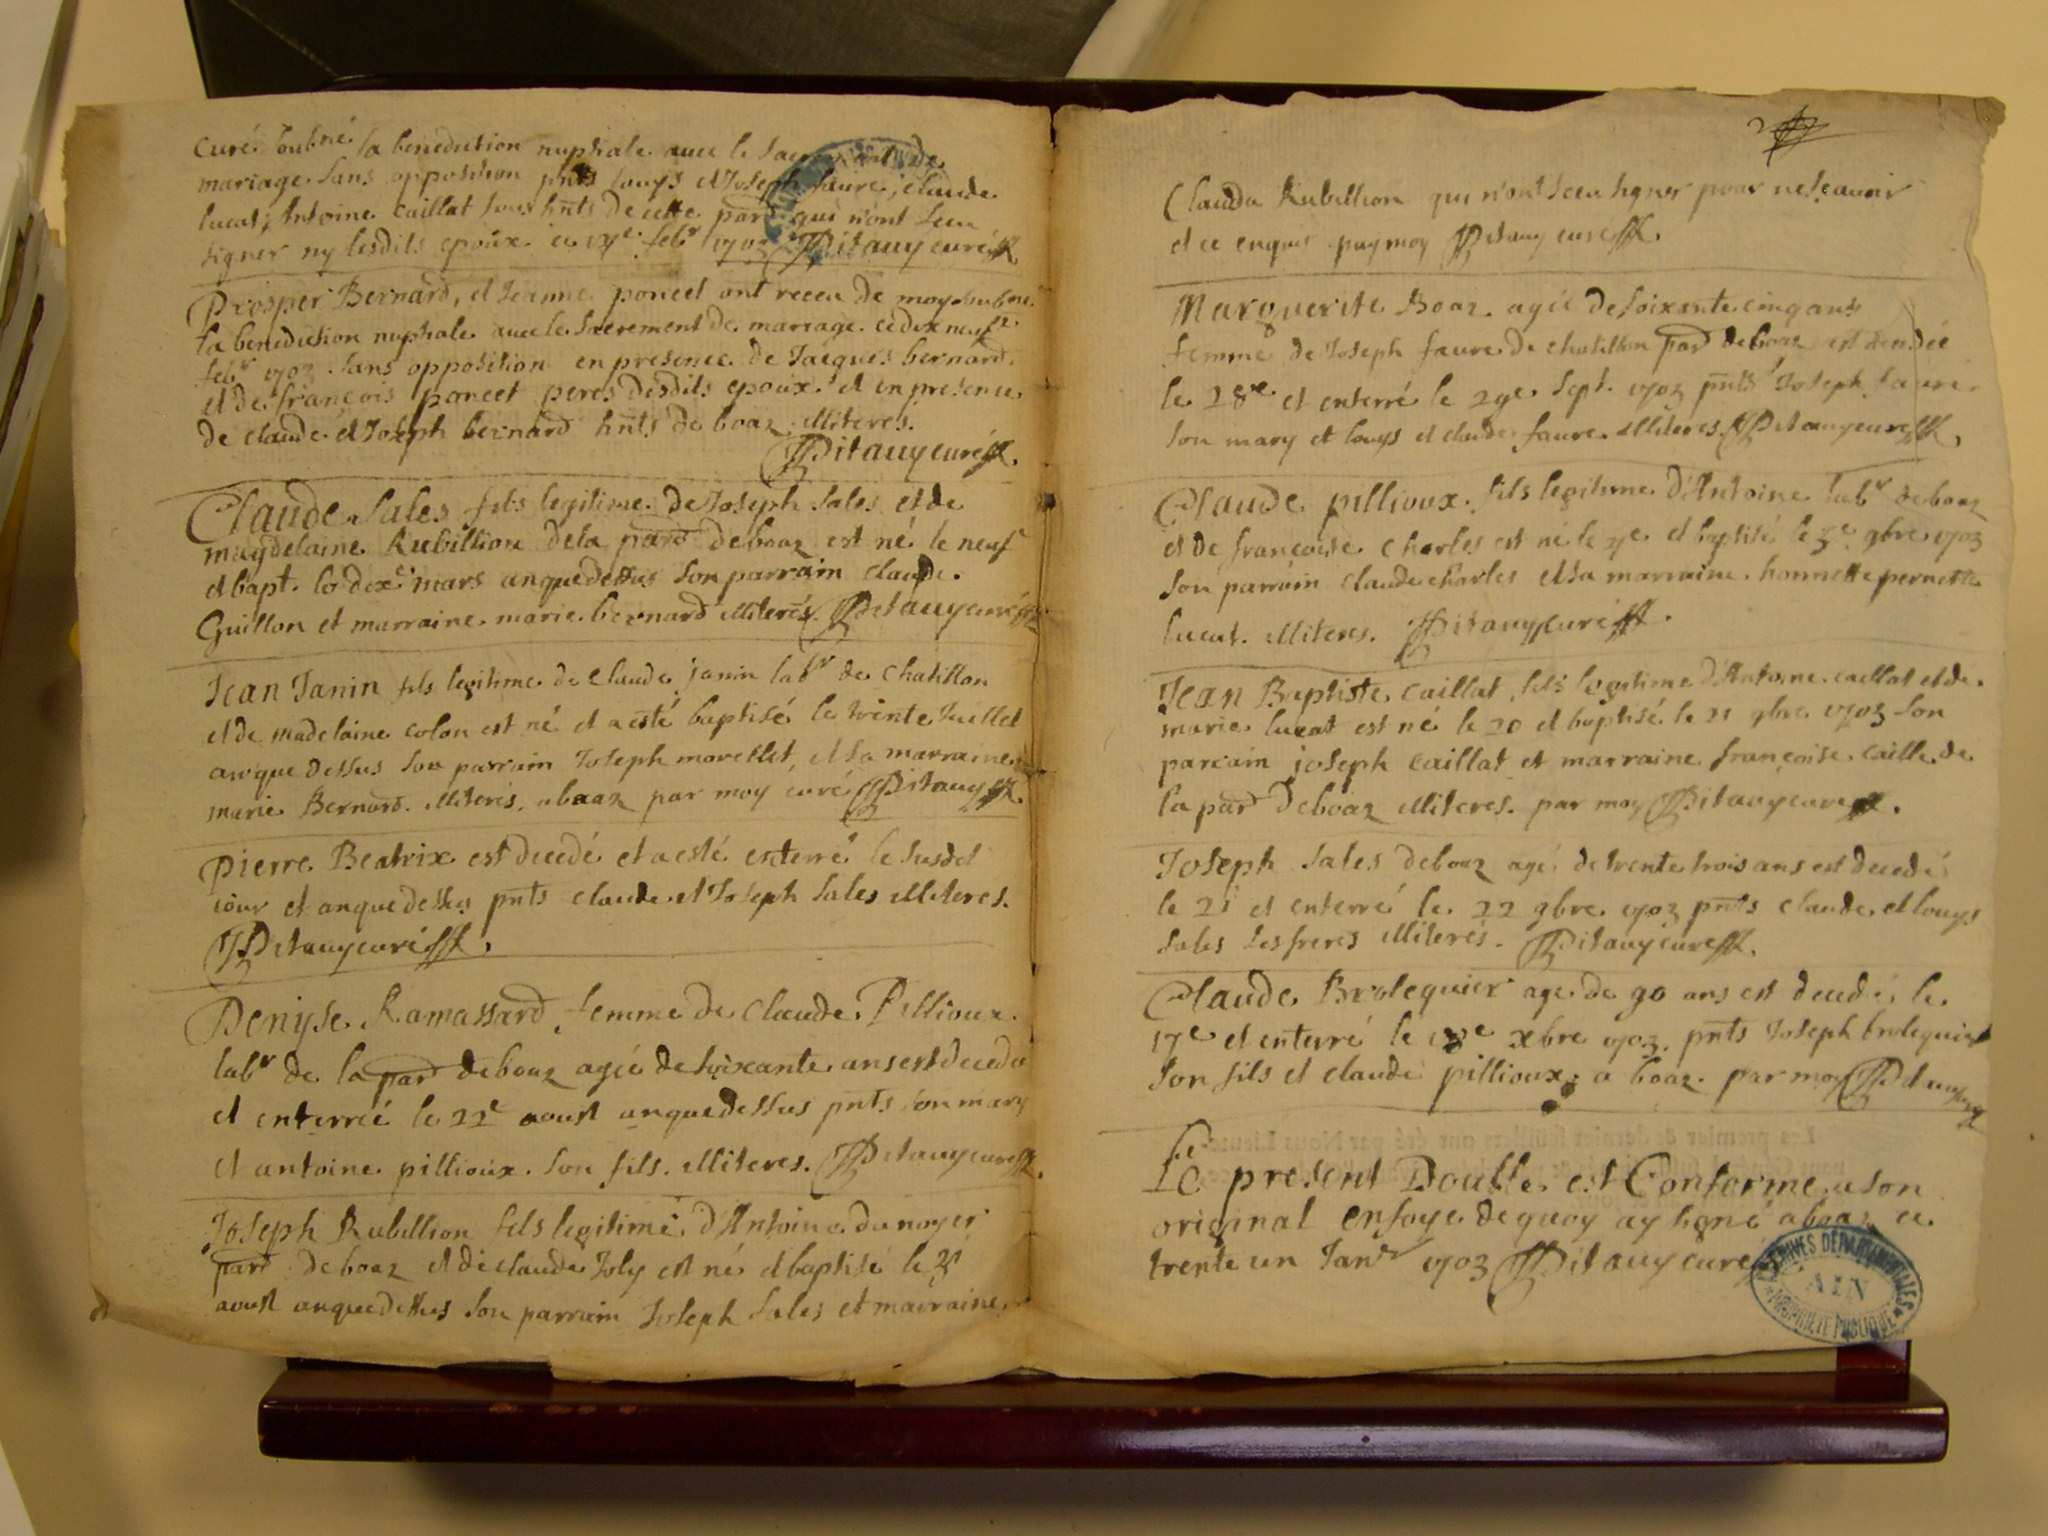 curé soubné la benediction nuptiale avec le sacrement de
mariage sans opposition pnts louys et Joseph faure, claude
lucat, Antoine caillat tous hnts de cette parr qui n'ont sceu
signer ny lesdits epoux ce febr 1703 Pitauy curé
Prosper Bernard, et Jeanne poncet ont receu de moy soubne
la benediction nuptiale avec le sacrement de mariage ce dix neuf
febr 1703 sans opposition en presence de Jacques bernard
et de françois poncet peres desdits epoux et en presence
de claude et Joseph bernard hnts de boaz illiteres.
Pitauy curé
Claude Sales fils legitime de Joseph Sales et de
magdelaine Rubillion dela parr de boaz est né le neuf
et bapt. le dixe mars anque dessus son parrain claude
Guillon et marraine marie bernard illiterés Pitauy curé
Jean Janin fils legitime de claude janin labr de chatillon
et de madelaine colon est né et a esté baptisé le trente Juillet
anque dessus son parrain Joseph morellet, et sa marraine
marie Bernard illiterés, a boaz par moy curé Pitauy
Pierre Beatrix est decedé et a esté enterré le susdt
iour et anque dessus pnts claude et Joseph Sales illiteres.
Pitauy curé
Denyse Ramassard femme de Claude Pillioux
labr de la parr de boaz agée de soixante ans est decedée
et enterrée le 22e aoust anque dessus pnts son mary
et antoine pillioux son fils illiteres. Pitauy curé
Joseph Rubillion fils legitime d'Antoine du noyer
parr de boaz et de claude Joly est né et baptisé le
aoust anque dessus son parrain Joseph Sales et marraine
Clauda Rubillion qui n'ont sceu signer pour ne scavoir
et ce enquis par moy Pitauy curé
Marguerite Boaz agée de soixante cinq ans
femme de Joseph faure de chatillon parr de boaz est decedée
le 28e et enterré le 29e Sept. 1703 pnts Joseph faure
son mary et louys et claude faure illiteres Pitauy curé
Claude pillioux fils legitime d'Antoine labr de boaz
et de francoise Charles est né le et baptisé le 9bre 1703
son parrain claude charles et sa marraine honnette pernette
lucat illiteres. Pitauy curé
Jean Baptiste caillat fils legitime d'Antoine caillat et de
marie lucat est né le 20 et baptisé le 21 9bre 1703 son
parrain joseph caillat et marraine françoise caille de
la parr de boaz illiteres. par moy Pitauy curé
Joseph Sales de boaz agé de trente trois ans est decedé
le 21 et enterré le 22 9bre 1703 pnts claude et louys
Sales ses freres illiterés. Pitauy curé
Claude Brolequier agé de 90 ans est decedé le
17e et enterré le 18e xbre 1703. pnts Joseph brolequier
son fils et claude pillioux a boaz par moy Pitauy
Le present Double est Conforme a son
original en foye de quoy ay signé a boaz ce
trente un Janr 1703 Pitauy curé
ARCHIVES DÉPARTEMENTALES
AIN
PROPRIÉTÉ PUBLIQUE